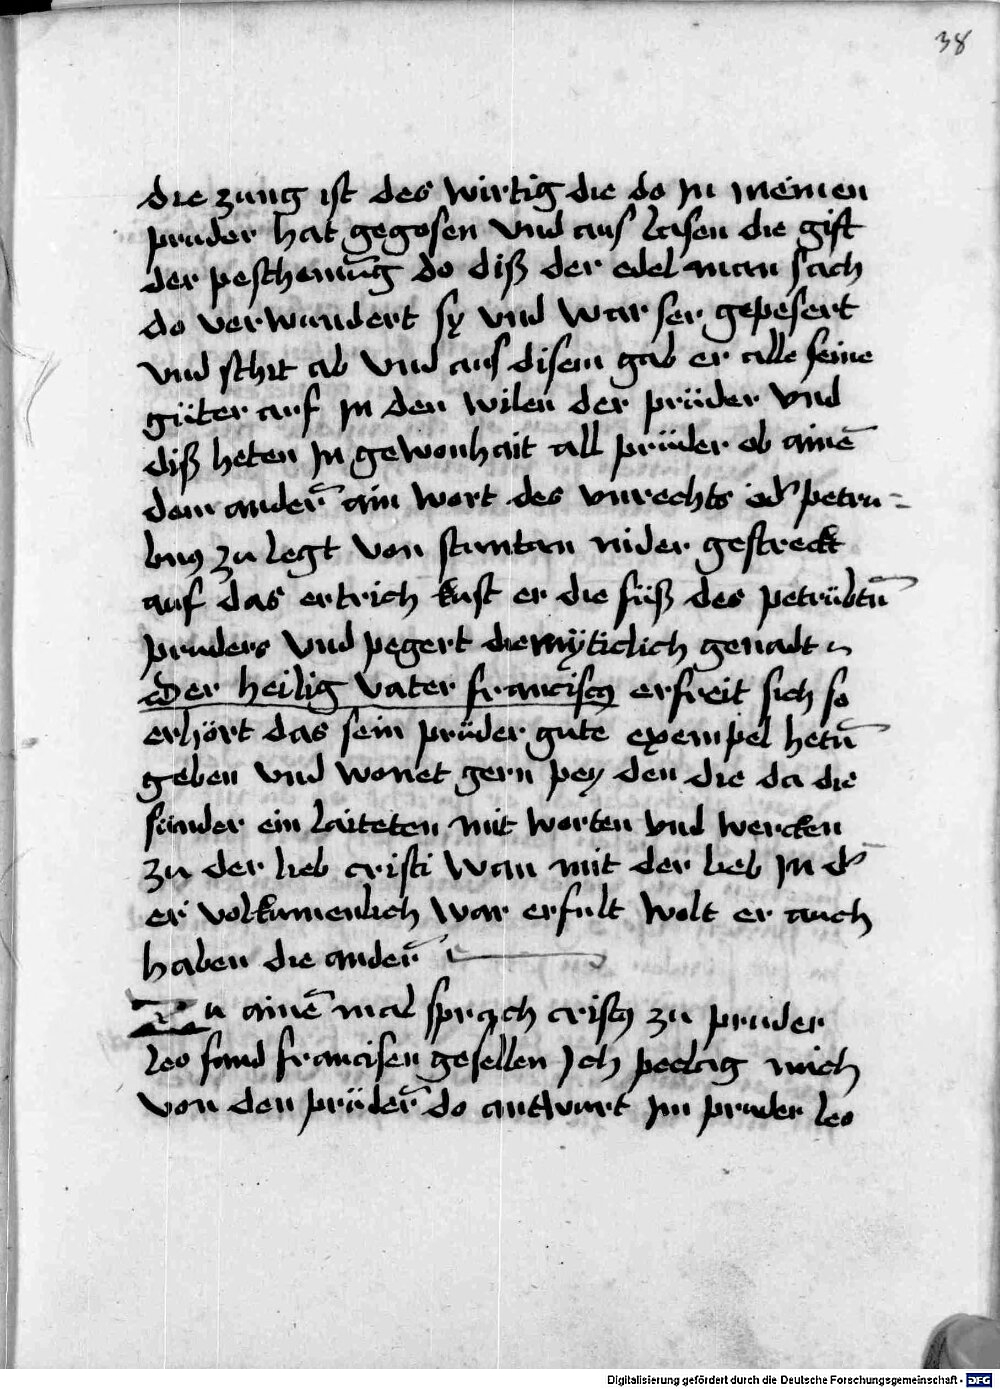 38
die zung ist des wirtig die do jn meinen
pruder hat gegosen vnd aus lasen die gift
der peschemūg do diß der edel man sach
do verwundert sy vnd war ser gepesert
vnd schit ab vnd aus disem gab er alle seine
güter auf jn den wilen der prüder vnd
diß heten jn gewonhait all prüder ob ainē
dem anderē ain wort des vnrechts od' petru-
bnꝰ zu legt von stuntan nider gestreckt
auf das ertrich kust er die füß des petrübtē
pruders vnd pegert diemyticlich genadt
Der heilig vater franciscꝰ erfreit sich so
erhört das sein prüder gute exempel hetē
geben vnd wonet gern pey den die da die
sünder ein laiteten mit worten vnd wercken
zu der lieb cristi wan mit der lieb jn d'
er volkumenlich war erfult wolt er auch
haben die anderē
Zu ainē mal sprach cristꝰ zu pruder
leo sand francisen gesellen jch peclag mich
von den prüderē do antwurt jm pruder leo
Digitalisierung gefördert durch die Deutsche Forschungsgemeinschaft - DFG